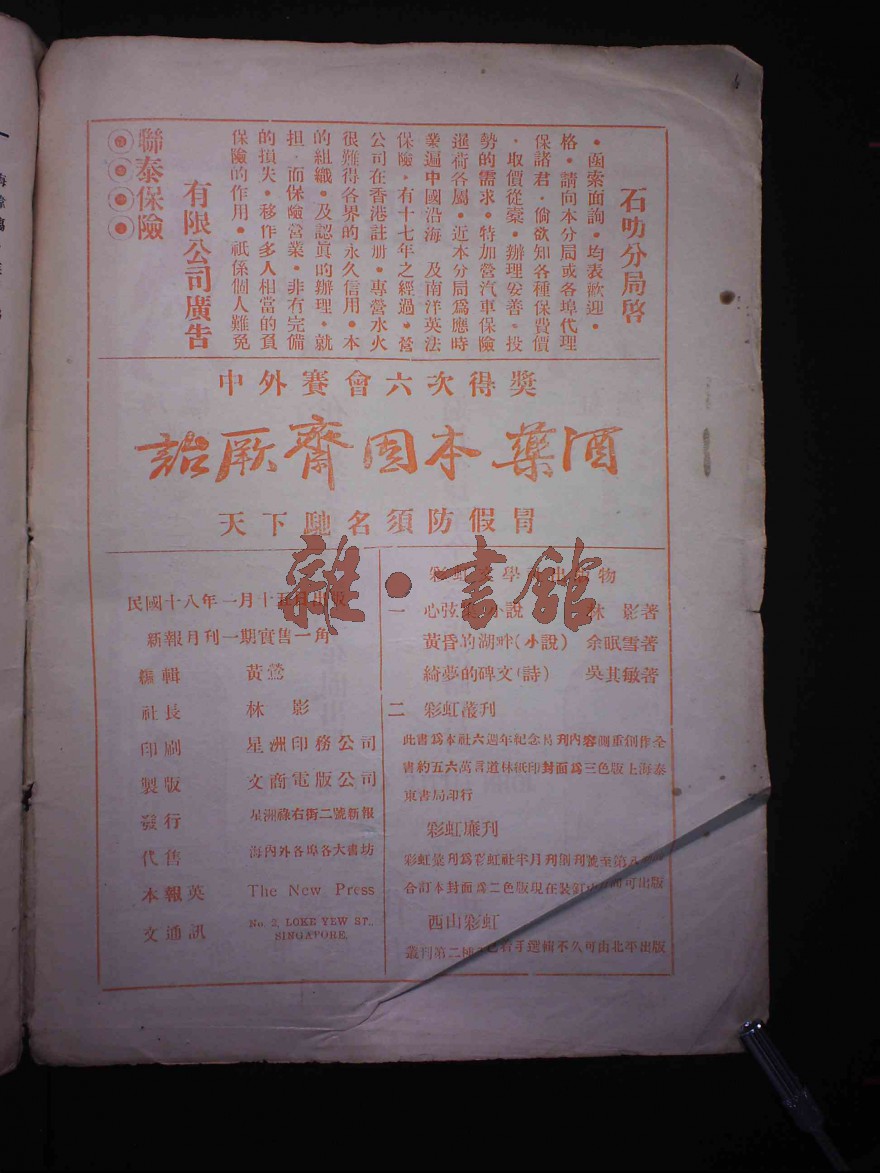 聯泰保險
有限公司廣告
保險的作用。祇係個人難免
的損失。移作多人相當的負
担。而保險營業。非有完備
的組織。及認眞的辦理。就
很難得各界的永久信用。本
公司在香港註册。專營水火
保險。有十七年之經過。營
業遍中國沿海 及南洋英法
暹荷各屬。近本分局爲應時
勢的需求。特加營汽車保險
。取價從棄。辦理妥善。投
保諸君。倘欲知各種保費價
格。請向本分局或各埠代理
。函索面詢。均表歡迎。
石叻分局啓
中外賽會六次得獎
詒厥齋固本藥酒
天下馳名須防假冒
民國十八年一月十五日出版
新報月刊一期實售一角
編輯 黃鶯
社長 林影
印刷 星洲印務公司
製版 文商電版公司
發行 星洲祿右街二號新報
代售 海内外各埠各大書坊
本報英 The New Press
文通訊 No. 2, LOKE YEW ST., SINGAPORE.
彩虹文學社出版物
一 心弦 小說 林 影著
黃昏的湖畔(小說) 余眠雪著
綺夢的碑文(詩) 吳其敏著
二 彩虹叢刊
此書爲本社六週年紀念特刊内容側重創作全
書約五六萬言道林紙印封面爲三色版上海泰
東書局印行
彩虹彙刊
彩虹彙刊爲彩虹社半月刊創刊號至第八
合訂本封面爲二色版現在裝釘 可出版
西山彩虹
叢刊第二種 已着手選輯不久可由北平出版
雜·書館